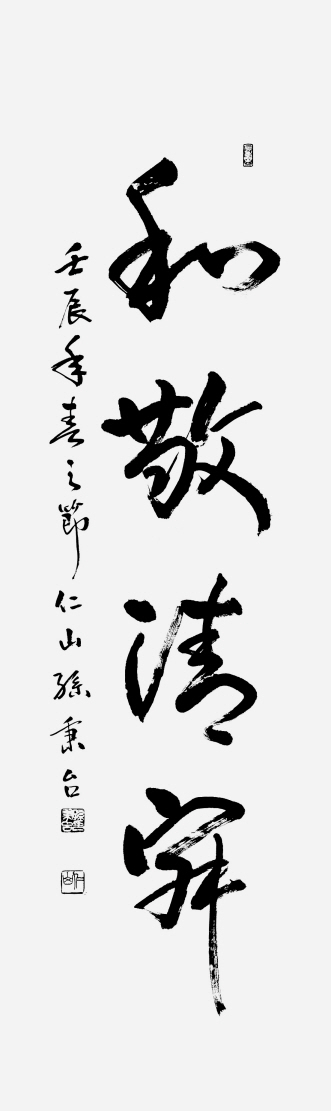 和敬清寂
壬辰年春之節 仁山 孫秉台